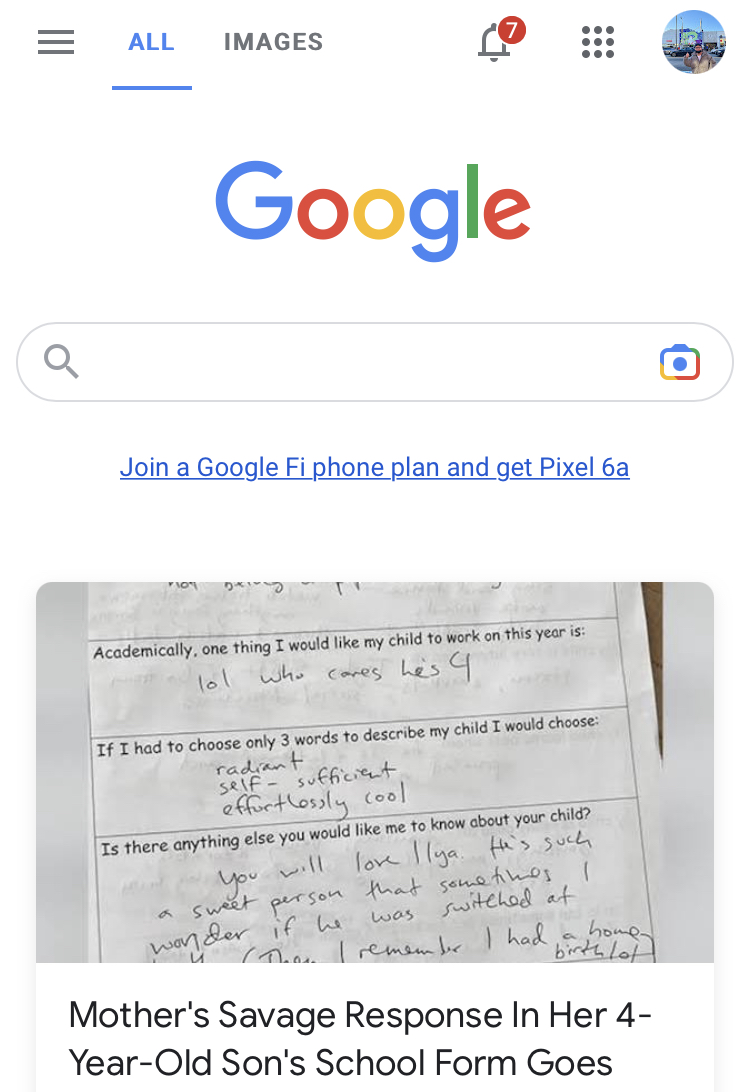 ALL IMAGES 7
Google
Join a Google Fi phone plan and get Pixel 6a
Academically, one thing I would like my child to work on this year is:
lol who cares he's 4
If I had to choose only 3 words to describe my child I would choose:
radiant
self-sufficient
effortlessly cool
Is there anything else you would like me to know about your child?
You will love Ilya. He's such
a sweet person that sometimes I
wonder if he was switched at
(Then I remember I had a home
birth lol)
Mother's Savage Response In Her 4-
Year-Old Son's School Form Goes